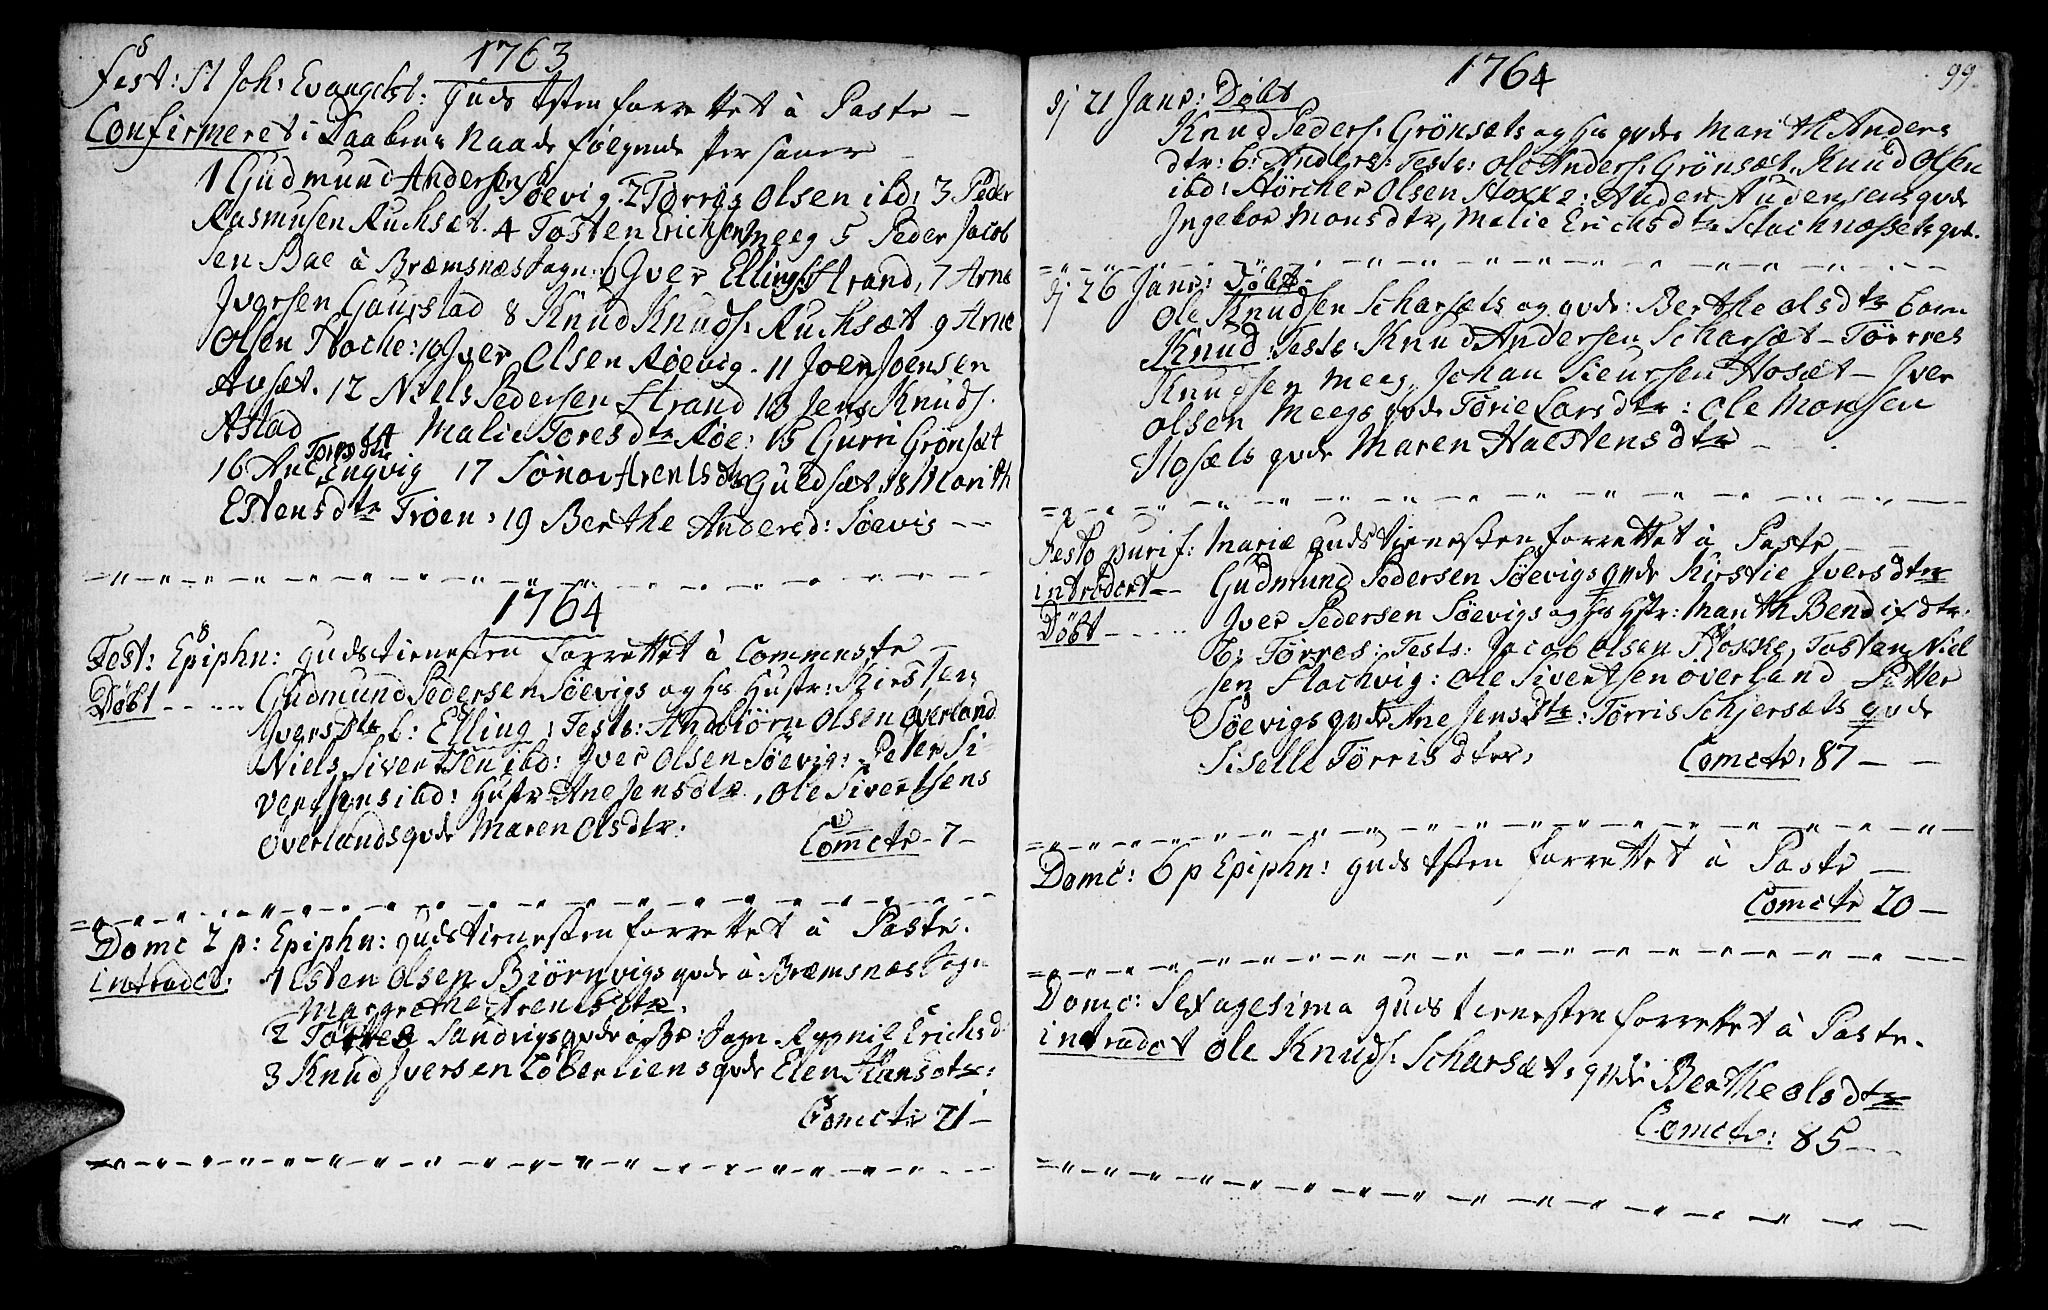 1763
Fest: St Joh: Evangelst: Guds tsten forrettet â Paste –
Confirmeret i Daabens Naade følgende Personer –
1 Gudmund Andersen Søevig 2 Tørris Olsen ibd: 3 Peder
Rasmusen Ruchsæt. 4 Tosten Erichsen Meeg 5 Peder Jacob
sen Bae â Bræmsnæs Sogn: 6 Jver Ellings: Strand, 7 Arne
Jversen Gaurstad 8 Knud Knuds: Ruchsæt 9 Arne
Olsen Stoche: 10 Jver Olsen Røevig. 11 Joen Joensen
Ausæt. 12 Niels Pedersen Strand 13 Jens Knuds.
Astad 14 Malie Toresdtr Røe: 15 Gurri Grönsæt
16 Ane Torrsdtr Engvig 17 Sönov Arentsdtr Guldsæt 18 Marith
Estensdtr Trøen: 19 Berthe Andersd: Søevig – –
1764
Fest: Epiphn: gudstienesten forrettet â Comenste –
Døbt – – – – Gudmund Pedersen Søevigs og hs Hustr: Kirsten
Jversdtr b: Elling: Tests: Andbiörn Olsen Overland
Niels Sivertsen ibd: Jver Olsen Søevig: Peter Si-
vertsens ibd: Hustr Ane Jensdtr, Ole Sivertsens
Overlands qvde Maren Olsdtr.
Comctr – 7 –
Domc 2 p: Epiphn: gudstienesten forrettet â Paste.
introdct: 1 Esten Olsen Biörnvigs qvde â Bræmsnæs Sogn
Margrethe Arentsdtr.
2 Torres Sandvigs qvde i Br: Sogn Rygnil Erichsd
3 Knud Jversen Løberliens qvde Elen Hansdtr:
Comctr 21 –
1764
99.
dj 21 Janv: Døbt
Knud Peders: Grönsæts og hs qvde Marith Anders
dtr: b: Anders: Teste: Ole Anders: Grönsæt. Knud Olsen
ibd: Störcher Olsen Stokke: Auden Audensens qvde
Ingebor Monsdtr, Malie Erichsdtr Stachnæssets qvd.
dj 26 Janv: Døbt:
Ole Knudsen Scharsæts og qvde: Berthe Olsdtr barn
Knud Teste: Knud Andersen Scharsæt – Törres
Knudsen Meeg, Johan Siursen Hosæt – Jver
Olsen Meegs qvde Törie Larsdtr: Ole Monsen
Hosæts qvde Maren Halstensdtr –
Festo purif: Mariæ gudstienesten forrettet â Paste –
introdcrt – – Gudmund Pedersen Søevigs qvde Kirstie Jversdtr
Døbt – – – – Jver Pedersen Søevigs og hs Hstr: Marith Bendixdtr.
b: Törres: Tests: Jacob Olsen Stokke, Tosten Niel
sen Stachvig: Ole Sivertsen Overland Petter
Søevigs qvde Ane Jensdtr: Törris Schjersæts qvde
Siselle Törrisdtr:
Comctr: 87 – –
Domc: 6 p Epiphn: guds tsten forrettet â Paste –
Comctr 20 –
Domc: Sexagesima guds tienesten forrettet â Paste.
introdct Ole Knuds: Scharsæts qvde Berthe Olsdtr
Comctr: 85 – –